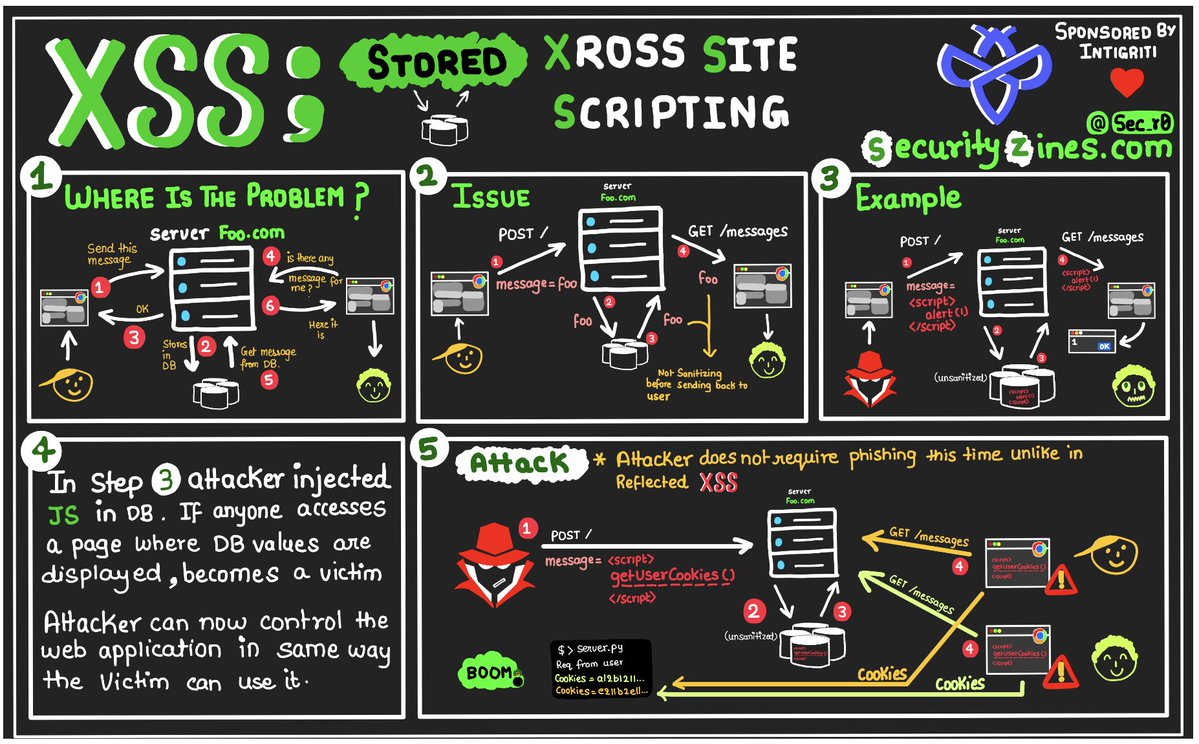 XSS;
STORED
XROSS SITE
SCRIPTING
SPONSORED BY
INTIGRITI
@Sec_r0
SecurityZines.com
1
WHERE IS THE PROBLEM?
Server Foo.com
Send this
message
1
OK
3
Stores
in
DB
2
Get message
from DB.
5
4
is there any
message for
me?
6
Here it
is
2
ISSUE
Server
Foo.com
POST /
1
message=foo
2
foo
3
foo
GET /messages
4
foo
Not Sanitizing
before sending back to
user
3
Example
Server
Foo.com
POST /
1
message=
<script>
alert(1)
</script>
2
(unsanitized)
<script>
alert(1)
</script>
3
GET /messages
4
<script>
alert(1)
</script>
1
OK
4
In Step 3 attacker injected
JS in DB. If anyone accesses
a page where DB values are
displayed, becomes a victim
Attacker can now control the
web application in same way
the victim can use it.
5
Attack
* Attacker does not require phishing this time unlike in
Reflected XSS
Server
Foo.com
1
POST /
message= <script>
getUserCookies()
</script>
2
(unsanitized)
<script>
getUserCookies()
</script>
3
GET /messages
4
<script>
getUserCookies()
</script>
GET /messages
4
<script>
getUserCookies()
</script>
Cookies
Cookies
BOOM
$ > server.py
Req from user
Cookies = a12b1211...
Cookies = e211b2e11...